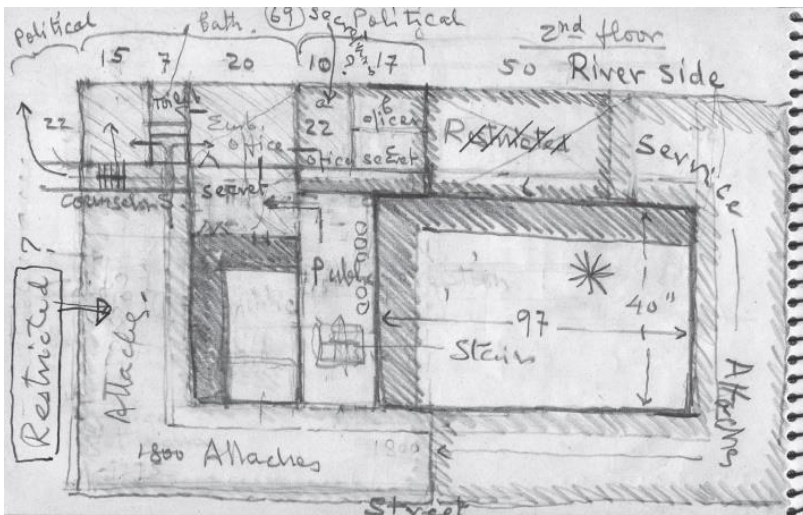 Political
bath.
(69)
Secret
Political
2nd floor
15
7
20
10
17
50
River side
22
Toilet
Emb.
office
a
22
b
offices
office secret
Restricted
Service
secret
Counselors.
Public
Restricted
?
Attaches.
97
40"
Stairs
Attaches
1800 Attaches
1800
Street